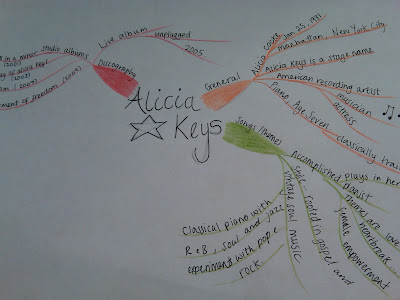 Alicia
Keys
Discography
Live album
unplugged
2005
in a minor studio albums
(2001)
of alicia keys
(2003)
(2007)
element of freedom (2009)
General
Alicia Cook
Jan 25, 1981
Manhattan, New York City
Alicia Keys is a stage name
American recording artist
musician
actress
Piano, Age Seven
classically
Songs/themes
Accomplished pianist
plays in her
Themes are love
heartbreak
female empowerment
Style - rooted in gospel and
vintage soul music
Classical piano with
R&B, soul and jazz
experiment with pope
rock.